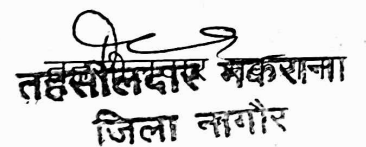 तहसीलदार मकराना
जिला नागौर